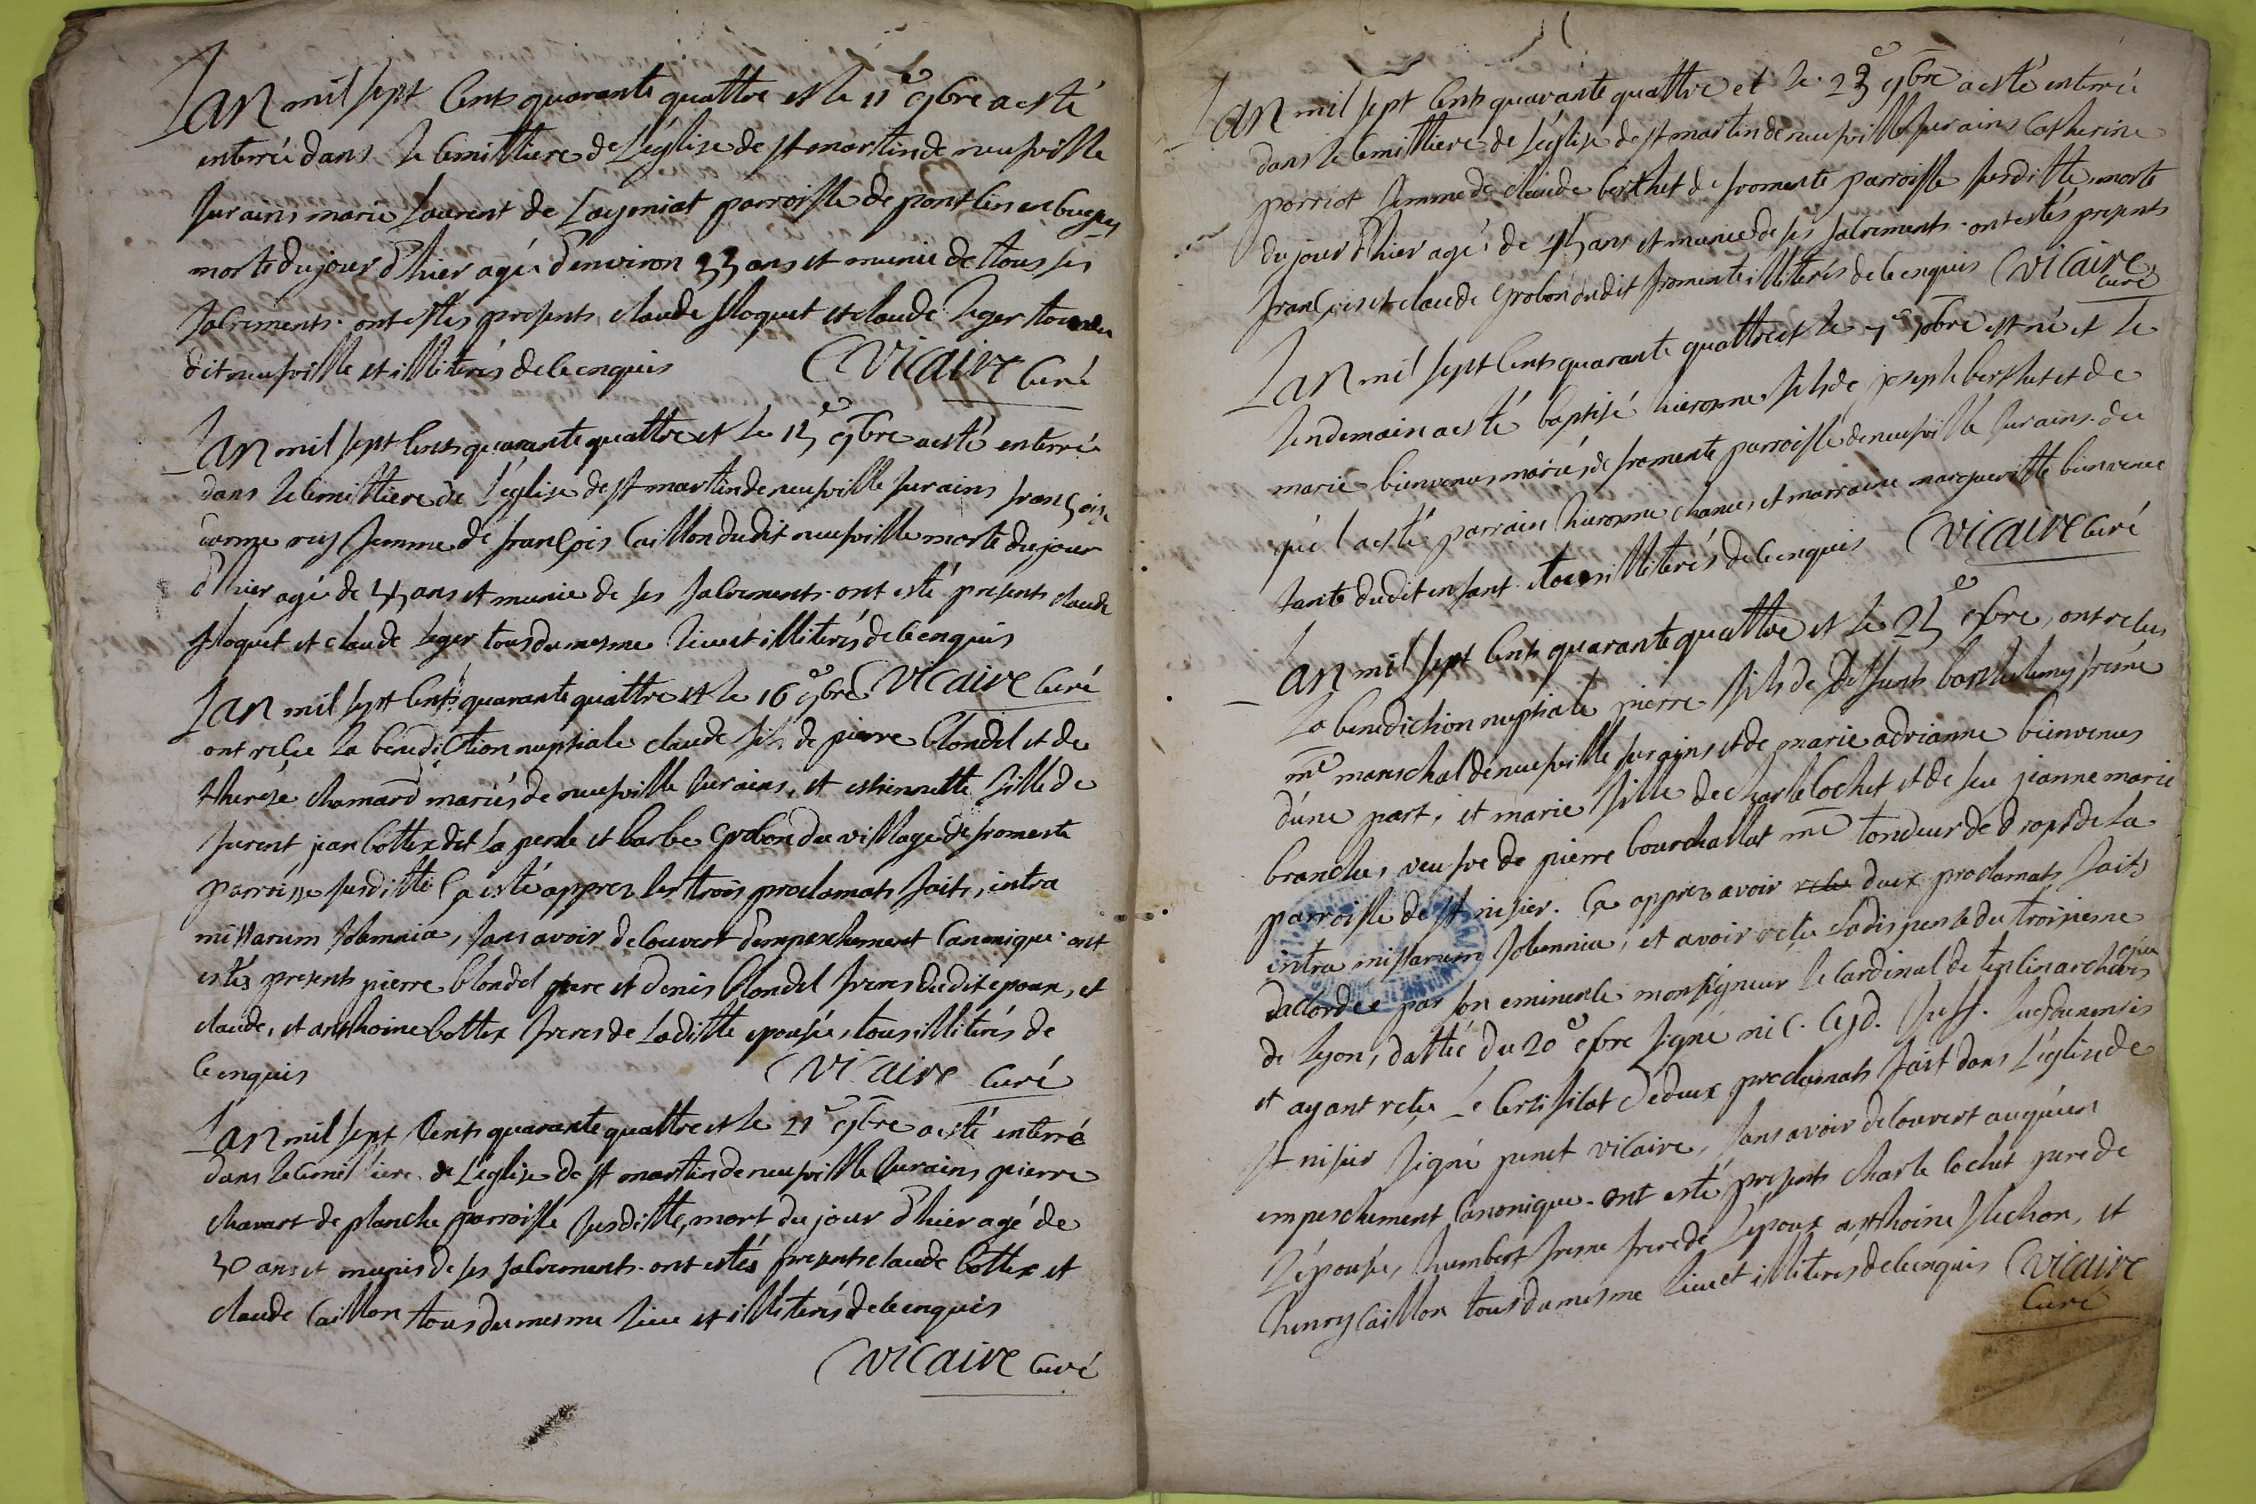 Lan mil sept Cents quarante quattre et le 11e 9bre a esté
enterrée dans le Cemittiere de L'église de st martin de neufville
sur ains marie Laurent de Lagniat parroisse de pont bugey
morte du jour d'hier agée d'environ 33 ans et munie de tous ses
sacrements. ont estés presents claude floquet et claude leger tous du
dit neufville et illiterés de ce enquis Vicaire Curé
Lan mil sept Cents quarante quattre et le 15e 9bre a esté enterrée
dans le Cemittiere de L'église de st martin de neufville sur ains françoise
rey femme de françois Caillon dudit neufville morte du jour
d'hier agée de 45 ans et munie de ses sacrements. ont esté présents claude
floquet et claude leger tous du mesme lieu et illiterés de ce enquis
Lan mil sept Cents quarante quattre et le 16e 9bre Vicaire Curé
ont reçu la benediction nuptiale claude fils de pierre blondel et de
therése chamard mariés de neufville sur ains, et estiennette fille de
furent jean Cottex dit la perle et barbe grobon du village de fromente
parroisse susditte Ça esté apprez les trois proclamats faits, intra
missarum solemnia, sans avoir decouvert d'empeschement Canonique. ont
estés presents pierre blondel pere et denis blondel freres dudit epoux, et
claude, et anthoine Cottex freres de laditte epousée, tous illiterés de
ce enquis Vicaire Curé
Lan mil sept Cents quarante quattre et le 21e 9bre a esté enterré
dans le Cemittiere de L'eglise de st martin de neufville sur ains pierre
chavart de planche parroisse susditte, mort du jour d'hier agé de
50 ans et munis de ses sacrements. ont estés presents claude Cottex et
claude Caillon tous du mesme lieu et illiterés de ce enquis
Vicaire Curé
Lan mil sept Cents quarante quattre et le 23e 9bre a esté enterrée
dans le Cemittiere de L'église de st martin de neufville sur ains Catherine
porriot femme de claude berthet de fromente parroisse susditte, morte
du jour d'hier agée de 45 ans et munie de ses sacrements. ont estés presents
françois et claude grobon dudit fromente illiterés de ce enquis Vicaire
Curé
Lan mil sept Cents quarante quattre et le 7e 9bre est né et le
lendemain a esté baptisé hierosme fils de joseph berthet et de
marie bienvenus mariés de fromente parroisse de neufville sur ains. du
quel a esté parrain hierosme et marraine margueritte bienvenue
tante dudit enfant. tous illiterés de ce enquis Vicaire Curé
Lan mil sept Cents quarante quattre et le 25e 9bre, ont reçus
la benediction nuptiale pierre fils de deffunts barthelemy fresne
me mareschal de neufville sur ains et de marie adrianne bienvenus
d'une part, et marie fille de charle Cochet et de feu jeanne marie
branche, veufve de pierre bourchallat me tondeur de draps de la
parroisse de st nisier. Ça apprez avoir deux proclamats faits
intra missarum solemnia, et avoir reçu la dispense du troisiesme
accordée par son eminence monseigneur le Cardinal de tenlin archeveque
de Lyon, dattée du 20e 9bre signé nic. Suff. Lugdunensis
et ayant reçu le Certificat de deux proclamats fait dans L'église de
st nisier signé penet vicaire, sans avoir decouvert auqu'un
empeschement Canonique. ont esté presents charle Cochet pere de
L'épousée, humbert fresne frere de L'époux anthoine flechon, et
henry Caillon tous du mesme lieu et illiterés de ce enquis Vicaire
Curé